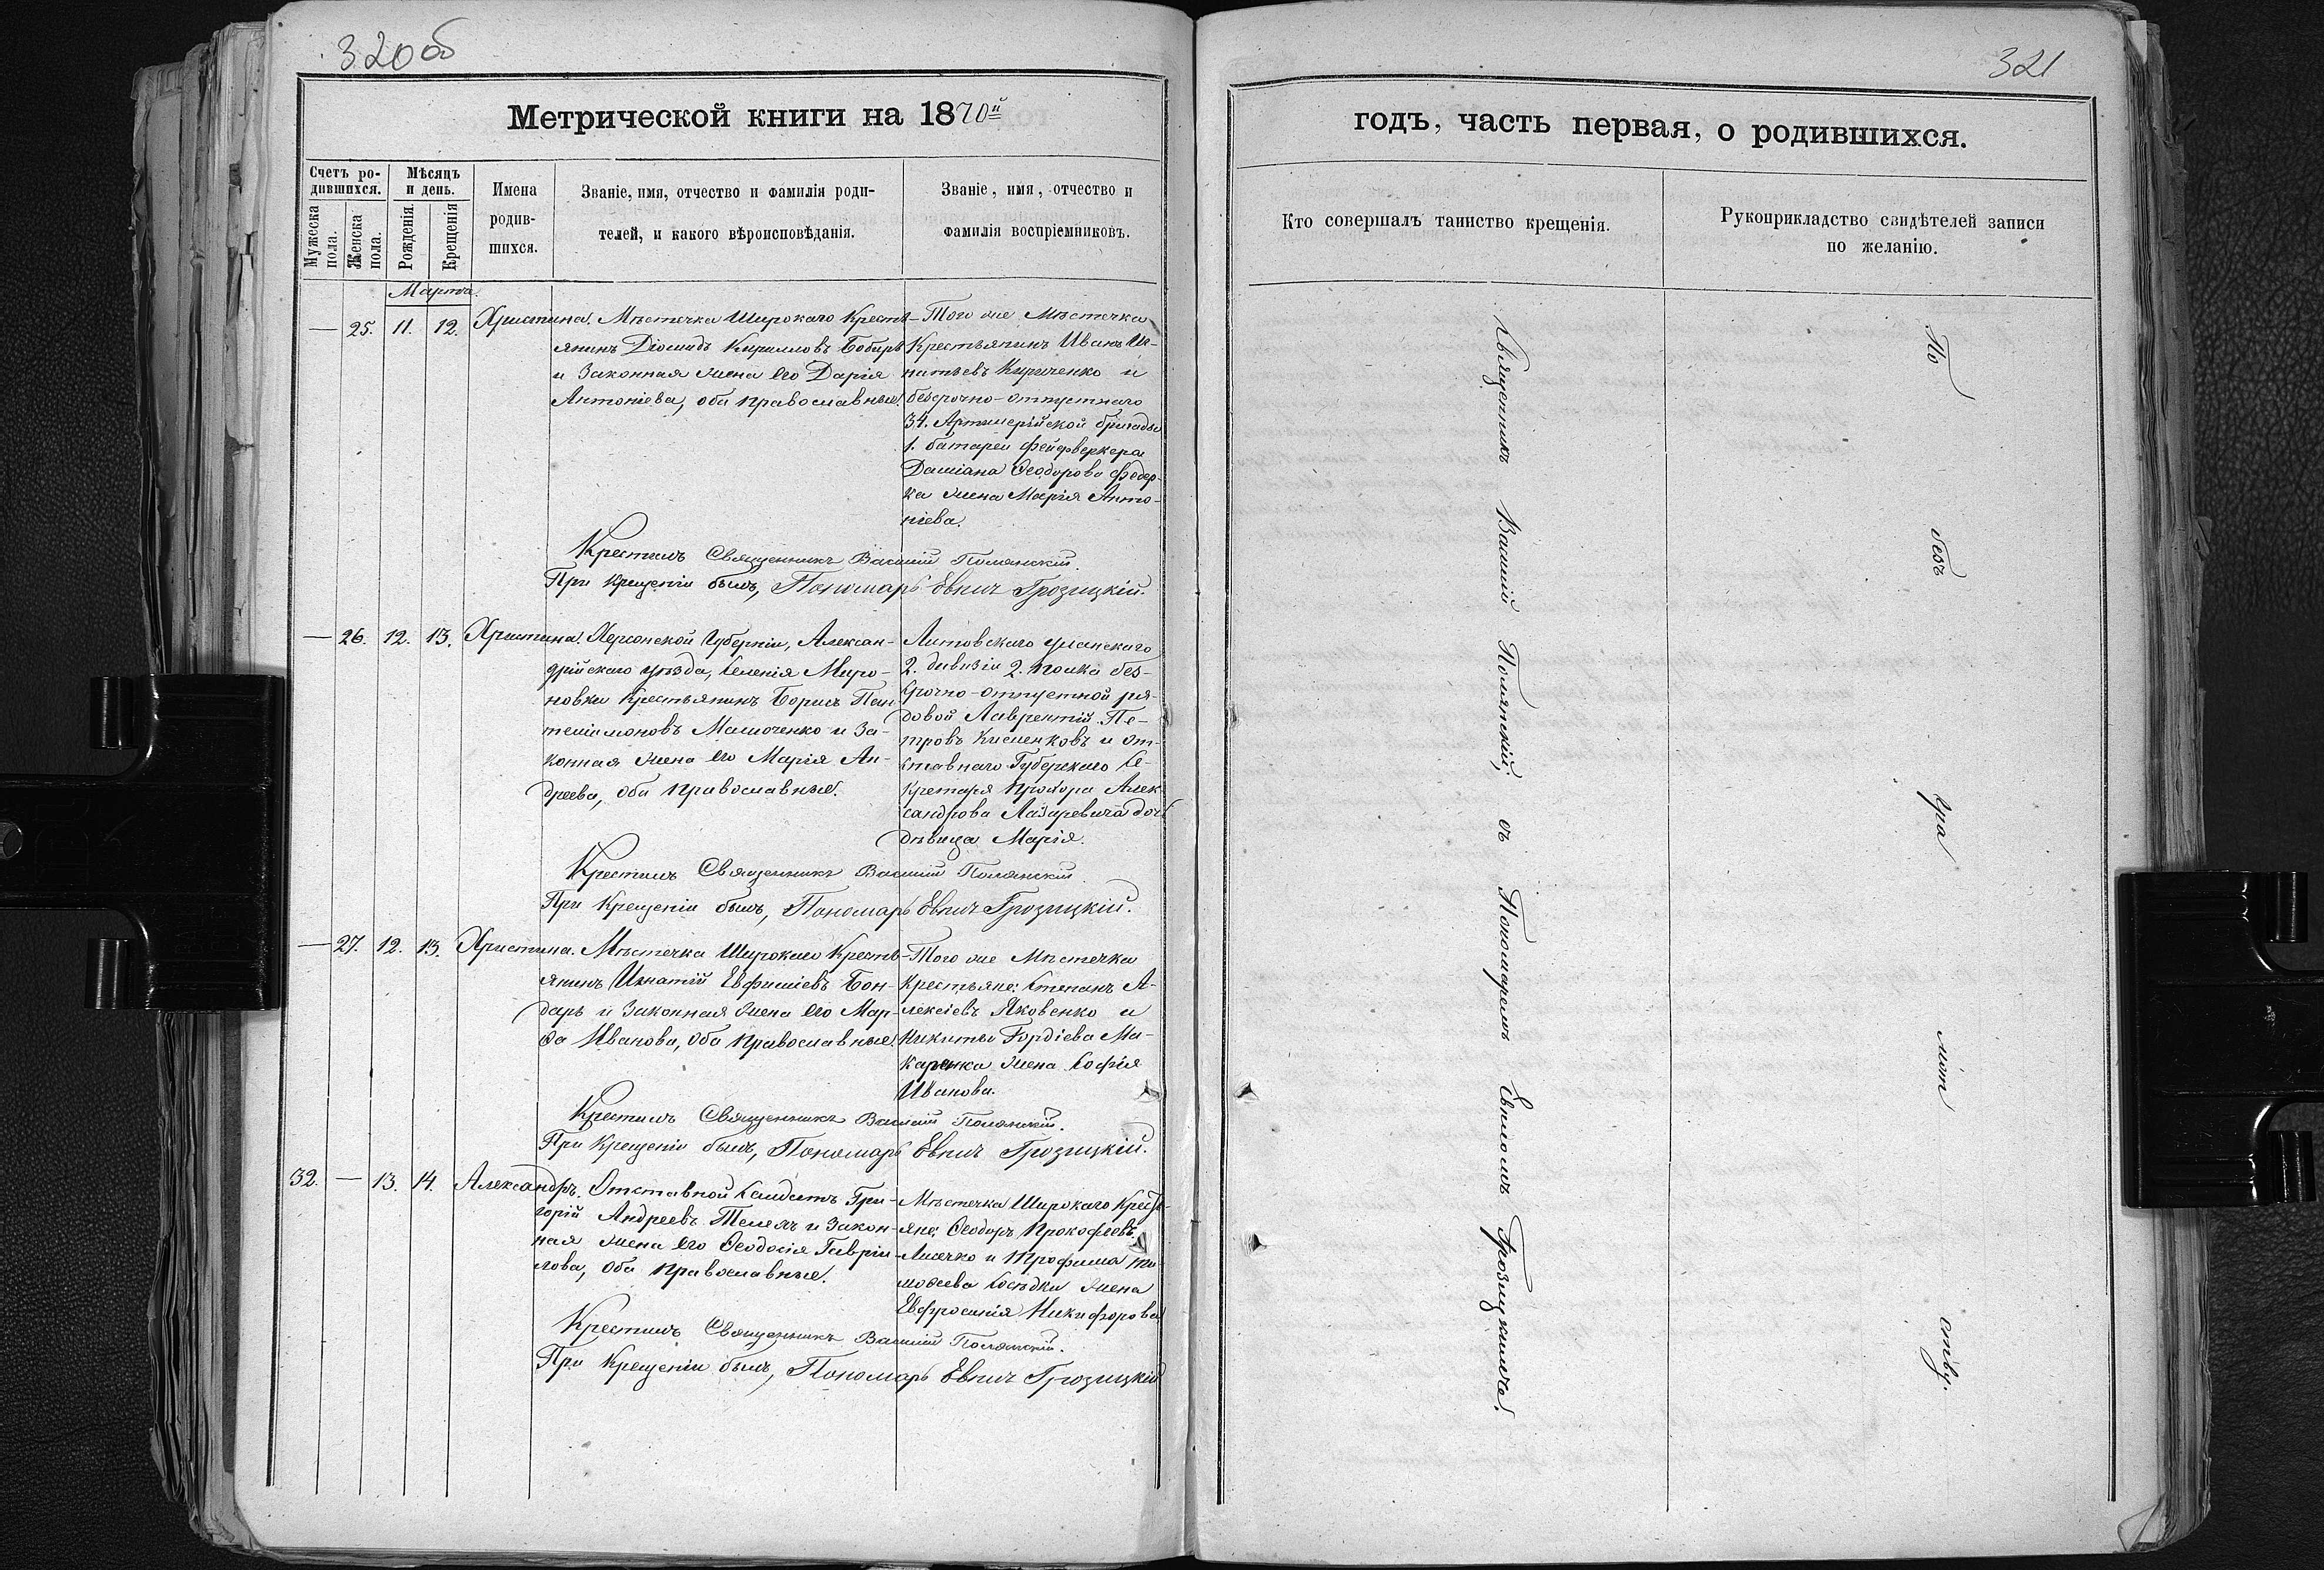 320об
Метрической книги на 1870й
Счетъ родившихся.
Мужеска пола.
Женска пола.
Мѣсяцъ и день.
Рожденія.
Крещенія
Имена родившихся.
Званіе, имя, отчество и фамилія родителей, и какого вѣроисповѣданія.
Званіе, имя, отчество и фамилія воспріемниковъ.
Марта.
— 25. 11. 12. Христина.
Мѣстечка Широкаго Кресть-
янинъ Діомидъ Кирилловъ Бобырь
и законная жена его Дарія
Антоніева, оба православные.
Того же Мѣстечка
Крестьянинъ Иванъ Иг-
натьевъ Кириченко и
безсрочно-отпустнаго
34. Артилерійской бригады
1. батареи фейерверкера
Даміана Ѳеодорова Федор-
ка жена Марія Анто-
ніева.
Крестилъ Священникъ Василій Полянскій.
При крещеніи былъ, Пономарь Евпич Грозицкій.
— 26. 12. 13. Христина.
Херсонской Губерніи, Алексан-
дрійскаго уѣзда, Селенія Миро-
новки Крестьянинъ Борисъ Пан-
телеімоновъ Малюченко и за-
конная жена его Марія Ан-
дреева, оба православные.
Литовскаго уланскаго
2. дивизіи 2. полка без-
срочно-отпустной ря-
довой Лаврентій Пе-
тровъ и от-
ставнаго Губерскаго Се-
кретаря Прохора Алек-
сандрова Лазаревича дочь
дѣвица Марія.
Крестилъ Священникъ Василій Полянскій
При Крещеніи былъ, Пономарь Евпич Грозицкій.
— 27. 12. 13. Христина.
Мѣстечка Широкаго Кресть-
янинъ Игнатій Евфиміевъ Бон-
дарь и законная жена его Мар-
ѳа Иванова, оба православные.
Того же Мѣстечка
Крестьяне: Степанъ А-
лексіевъ Яковенко и
Никиты Гордіева Ма-
каренка жена Софія
Иванова.
Крестилъ Священникъ Василій Полянскій.
При Крещеніи былъ, Пономарь Евпич Грозицкій.
32. — 13. 14. Александръ.
Отставной Солдатъ Гри-
горій Андреевъ и закон-
ная жена его Ѳеодосія Гаврии-
лова, оба православные.
Мѣстечка Широкаго Кресть-
яне, Ѳеодоръ Прокофіевъ
Лисечко и Трофима Ти-
моѳеева Сосѣдки жена
Евфросинія Никифорова
Крестилъ Священникъ Василій Полянскій.
При Крещеніи былъ, Пономарь Евпич Грозицкій
321
годъ, часть первая, о родившихся.
Кто совершалъ таинство крещенія.
Рукоприкладство свидѣтелей записи по желанію.
Священникъ Василій Полянскій, съ Пономаремъ Евпломъ Грозицкимъ.
По безъ гра мот ству.